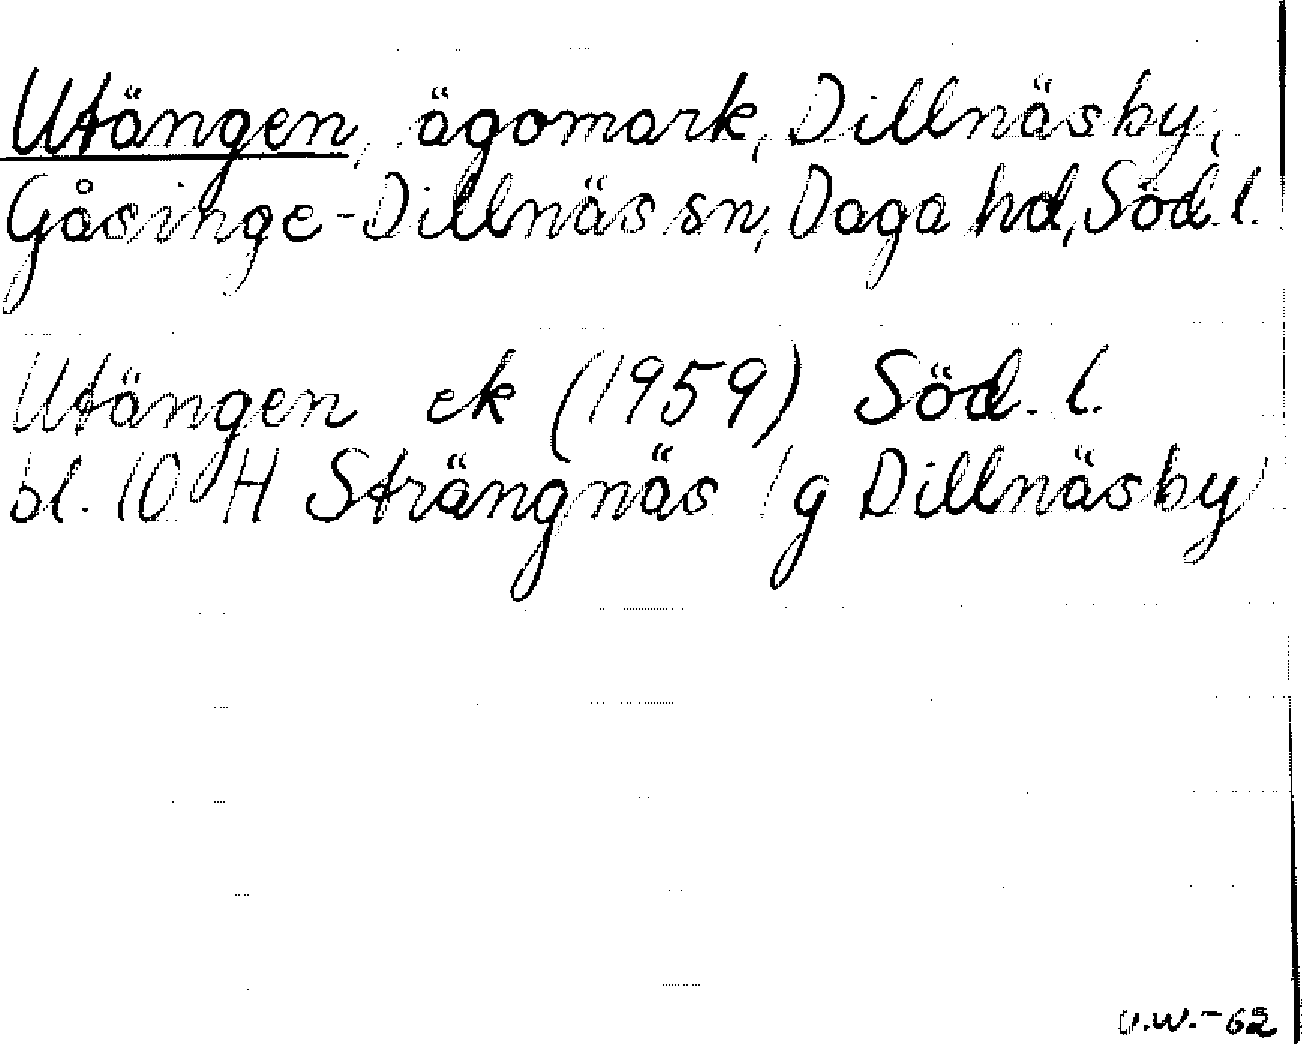 Utängen, ägomark, Dillnäsby,
Gåsinge-Dillnäs sn, Daga hd, Söd. l.
Utängen ek (1959) Söd. l.
bl. 10 H Strängnäs 1g Dillnäsby
U.W.-62